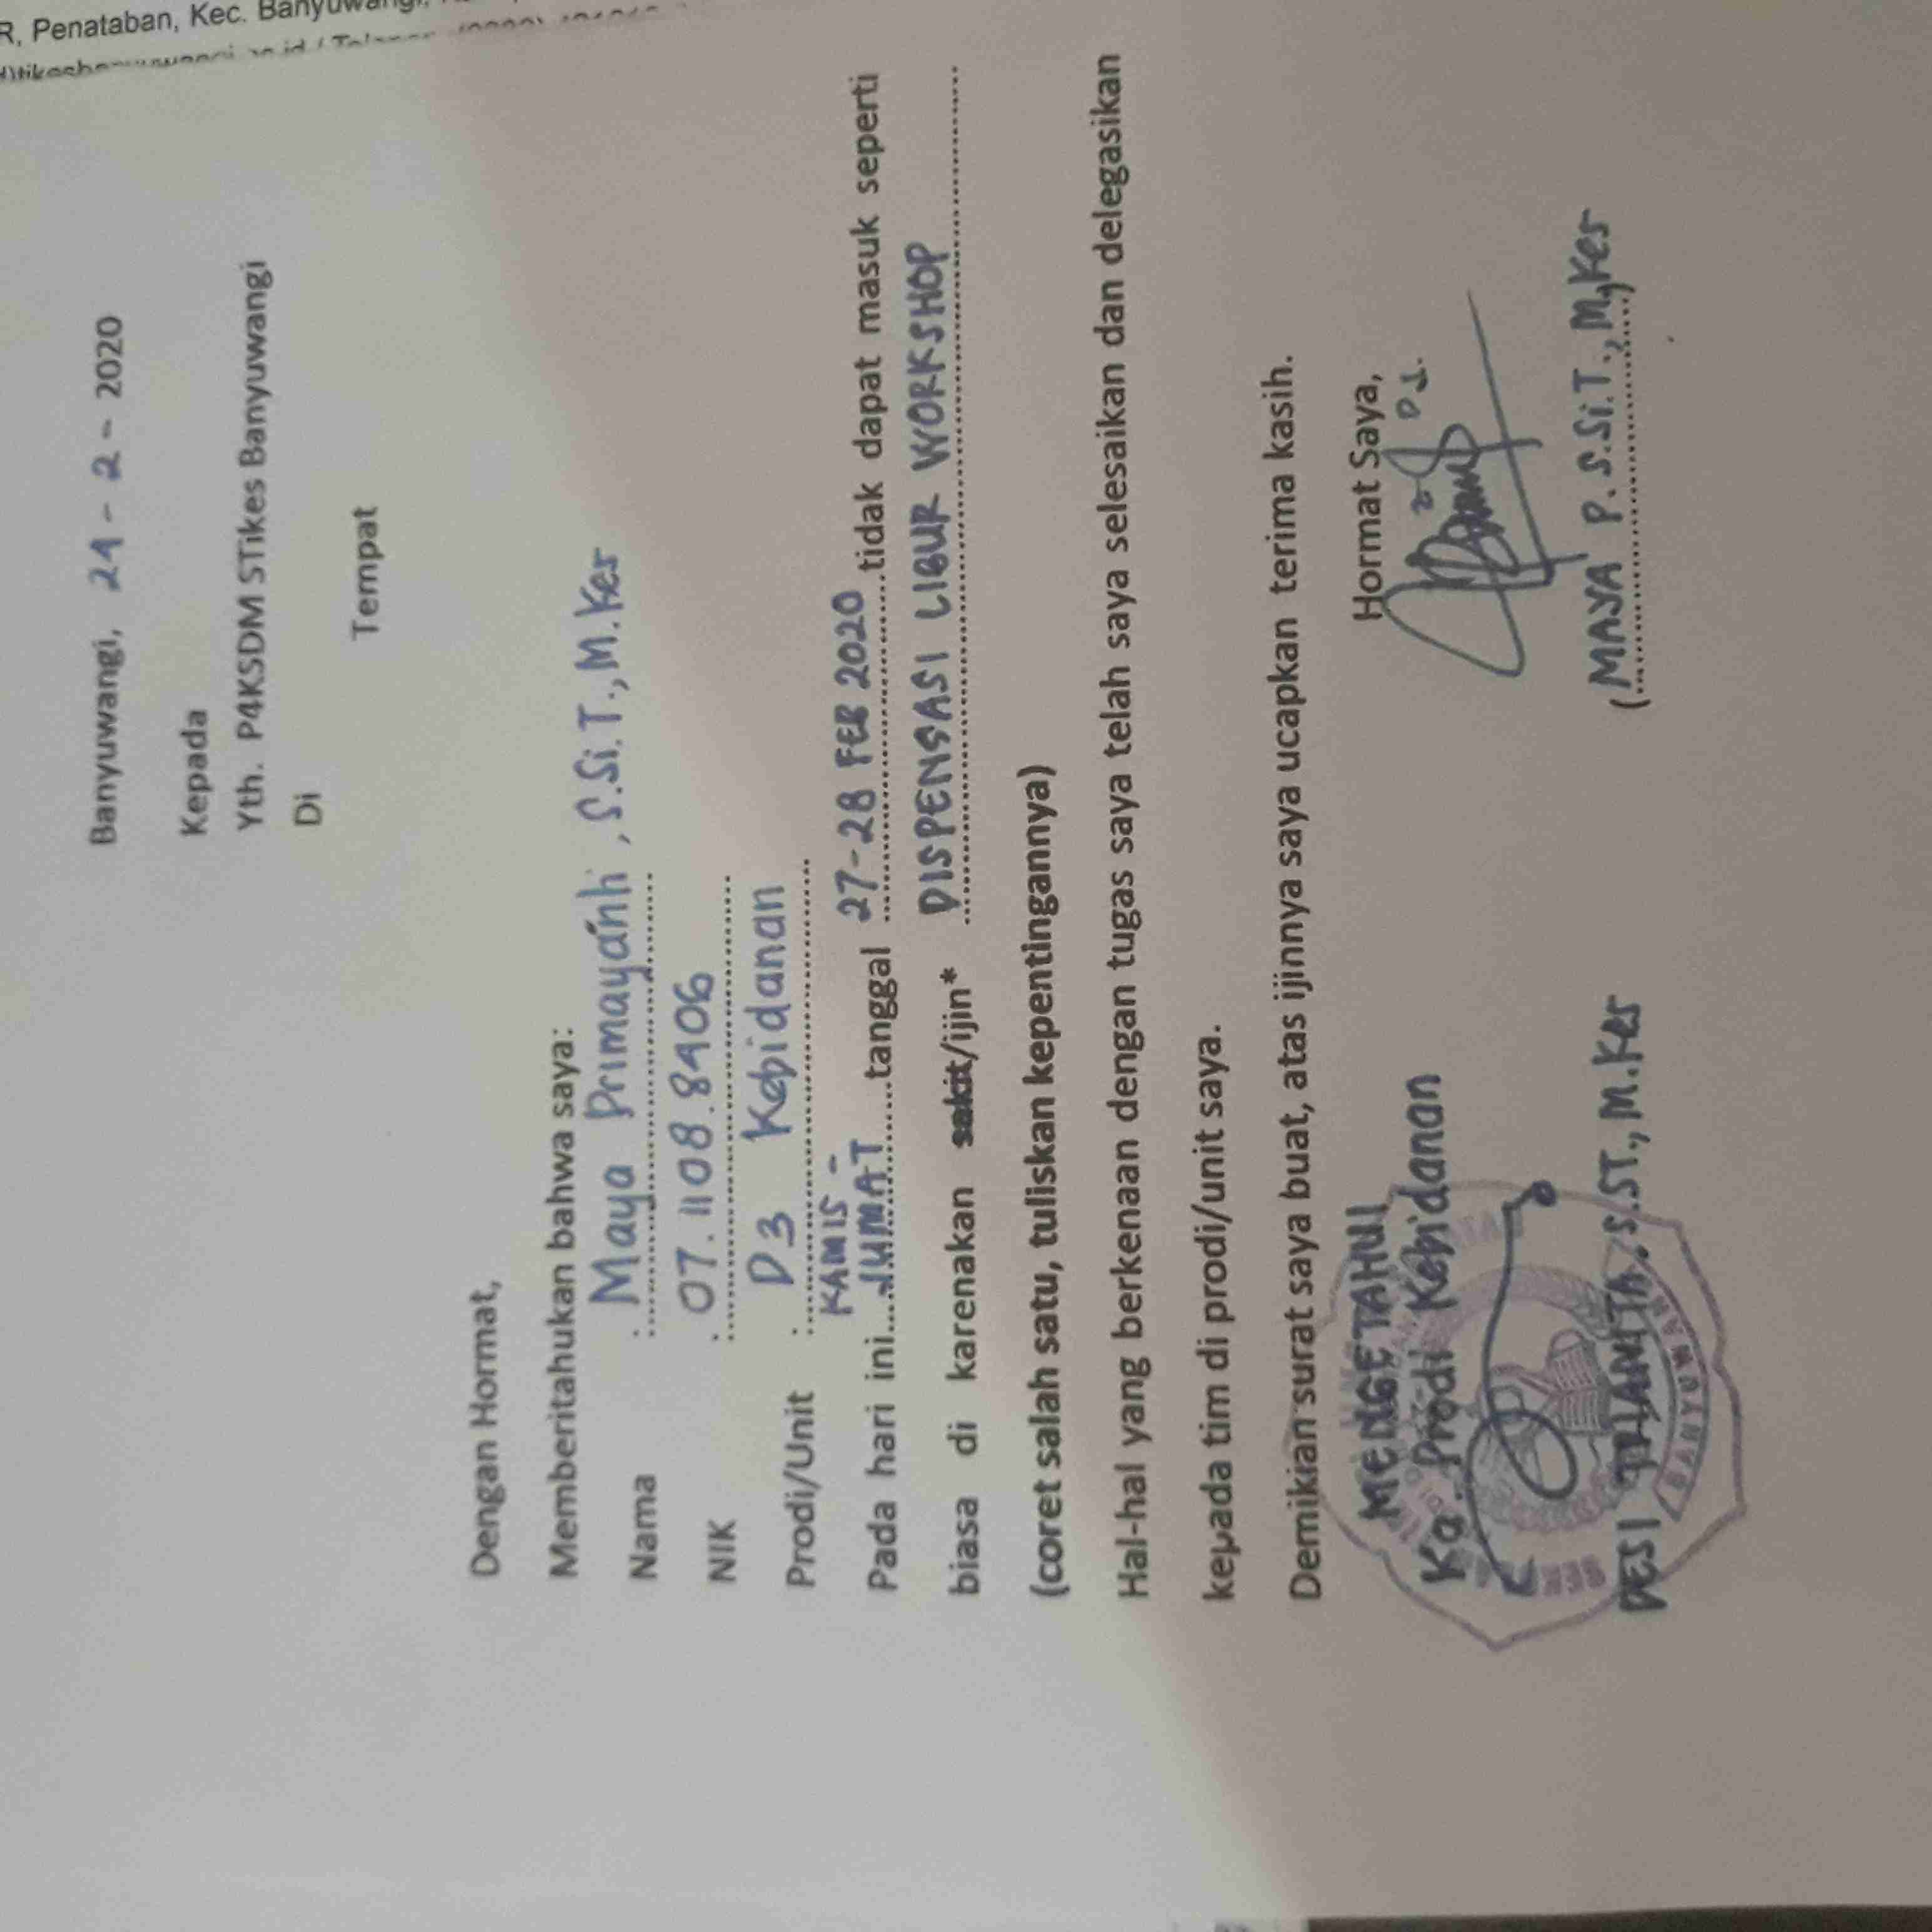 Banyuwangi, 24 - 2 - 2020
Kepada
Yth. P4KSDM STikes Banyuwangi
Di
Tempat
R, Penataban, Kec. Banyuwangi
Dengan Hormat,
Memberitahukan bahwa saya:
Nama : Maya Primayanti, S.Si.T., M.Kes
NIK : 07.1108.8406
Prodi/Unit : D3 Kebidanan
KAMIS -
Pada hari ini....JUMAT......tanggal 27-28 FEB 2020 tidak dapat masuk seperti
biasa di karenakan sakit/ijin* DISPENSASI LIBUR WORKSHOP
(coret salah satu, tuliskan kepentingannya)
Hal-hal yang berkenaan dengan tugas saya telah saya selesaikan dan delegasikan
kepada tim di prodi/unit saya.
Demikian surat saya buat, atas ijinnya saya ucapkan terima kasih.
MENGETAHUI
Ka. Prodi Kebidanan
Hormat Saya,
DESI TRIANITA. S.ST., M.Kes
(MAYA P. S.Si.T., M.Kes)
BANYUWANGI